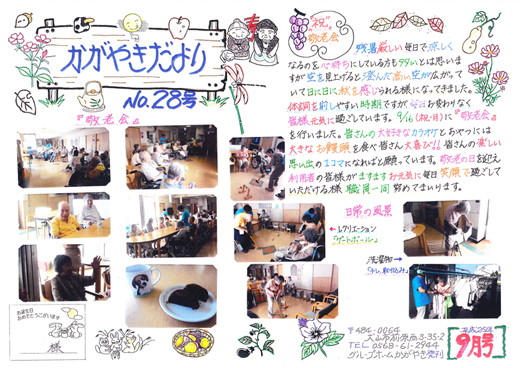 かがやきだより
No.28号
『敬老会』
寿
"祝"
敬老会
残暑厳しい毎日で涼しく
なるのを心待ちにしている方も多いとは思いま
すが空を見上げると澄んだ高い空が広がって
いて日に日に秋を感じられる様になってきました。
体調を崩しやすい時期ですが、お変わりなく
皆様元気に過ごしています。9/16(祝・月)に『敬老会』
を行いました。皆さんの大好きなカラオケとおやつには
大きなお饅頭を食べ皆さん大喜び!!皆さんの楽しい
思い出の1コマになればと願っています。敬老の日を迎え
利用者の皆様がますますお元気に毎日笑顔で過ごして
いただける様職員一同努めてまいります。
日常の風景
←レクリエーション
『ゲートボール』
洗濯物→
お誕生日
おめでとうございます
様
〒484-0064
犬山市前原南3-35-2
TEL 0568-61-2944
グループホームかがやき発行
平成25年
9月号